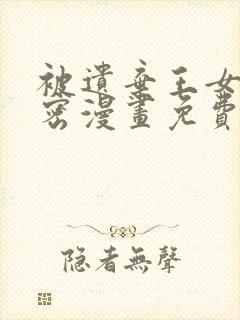 被遺棄王女
密漫畫免費
隱者無聲